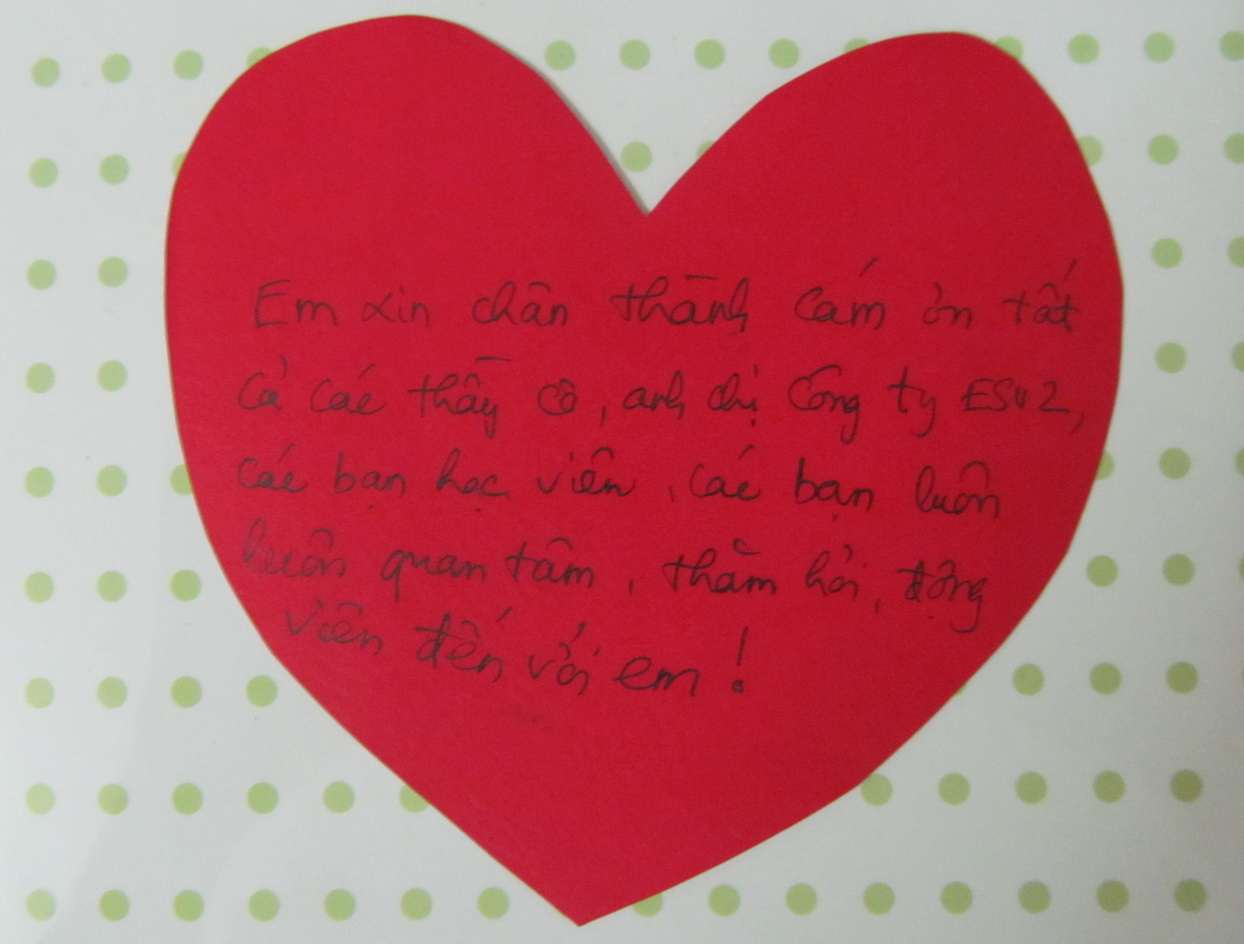 Em xin chân thành cám ơn tất
cả các thầy cô, anh chị Công ty ESU2,
các bạn học viên, các bạn luôn
luôn quan tâm, thăm hỏi, động
viên đến với em!